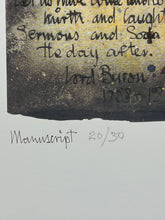 Let us have wine and wo
mirth and laugh
Sermons and Soda
the day after.
Lord Byron
1788 - 1
Manuscript 20/30